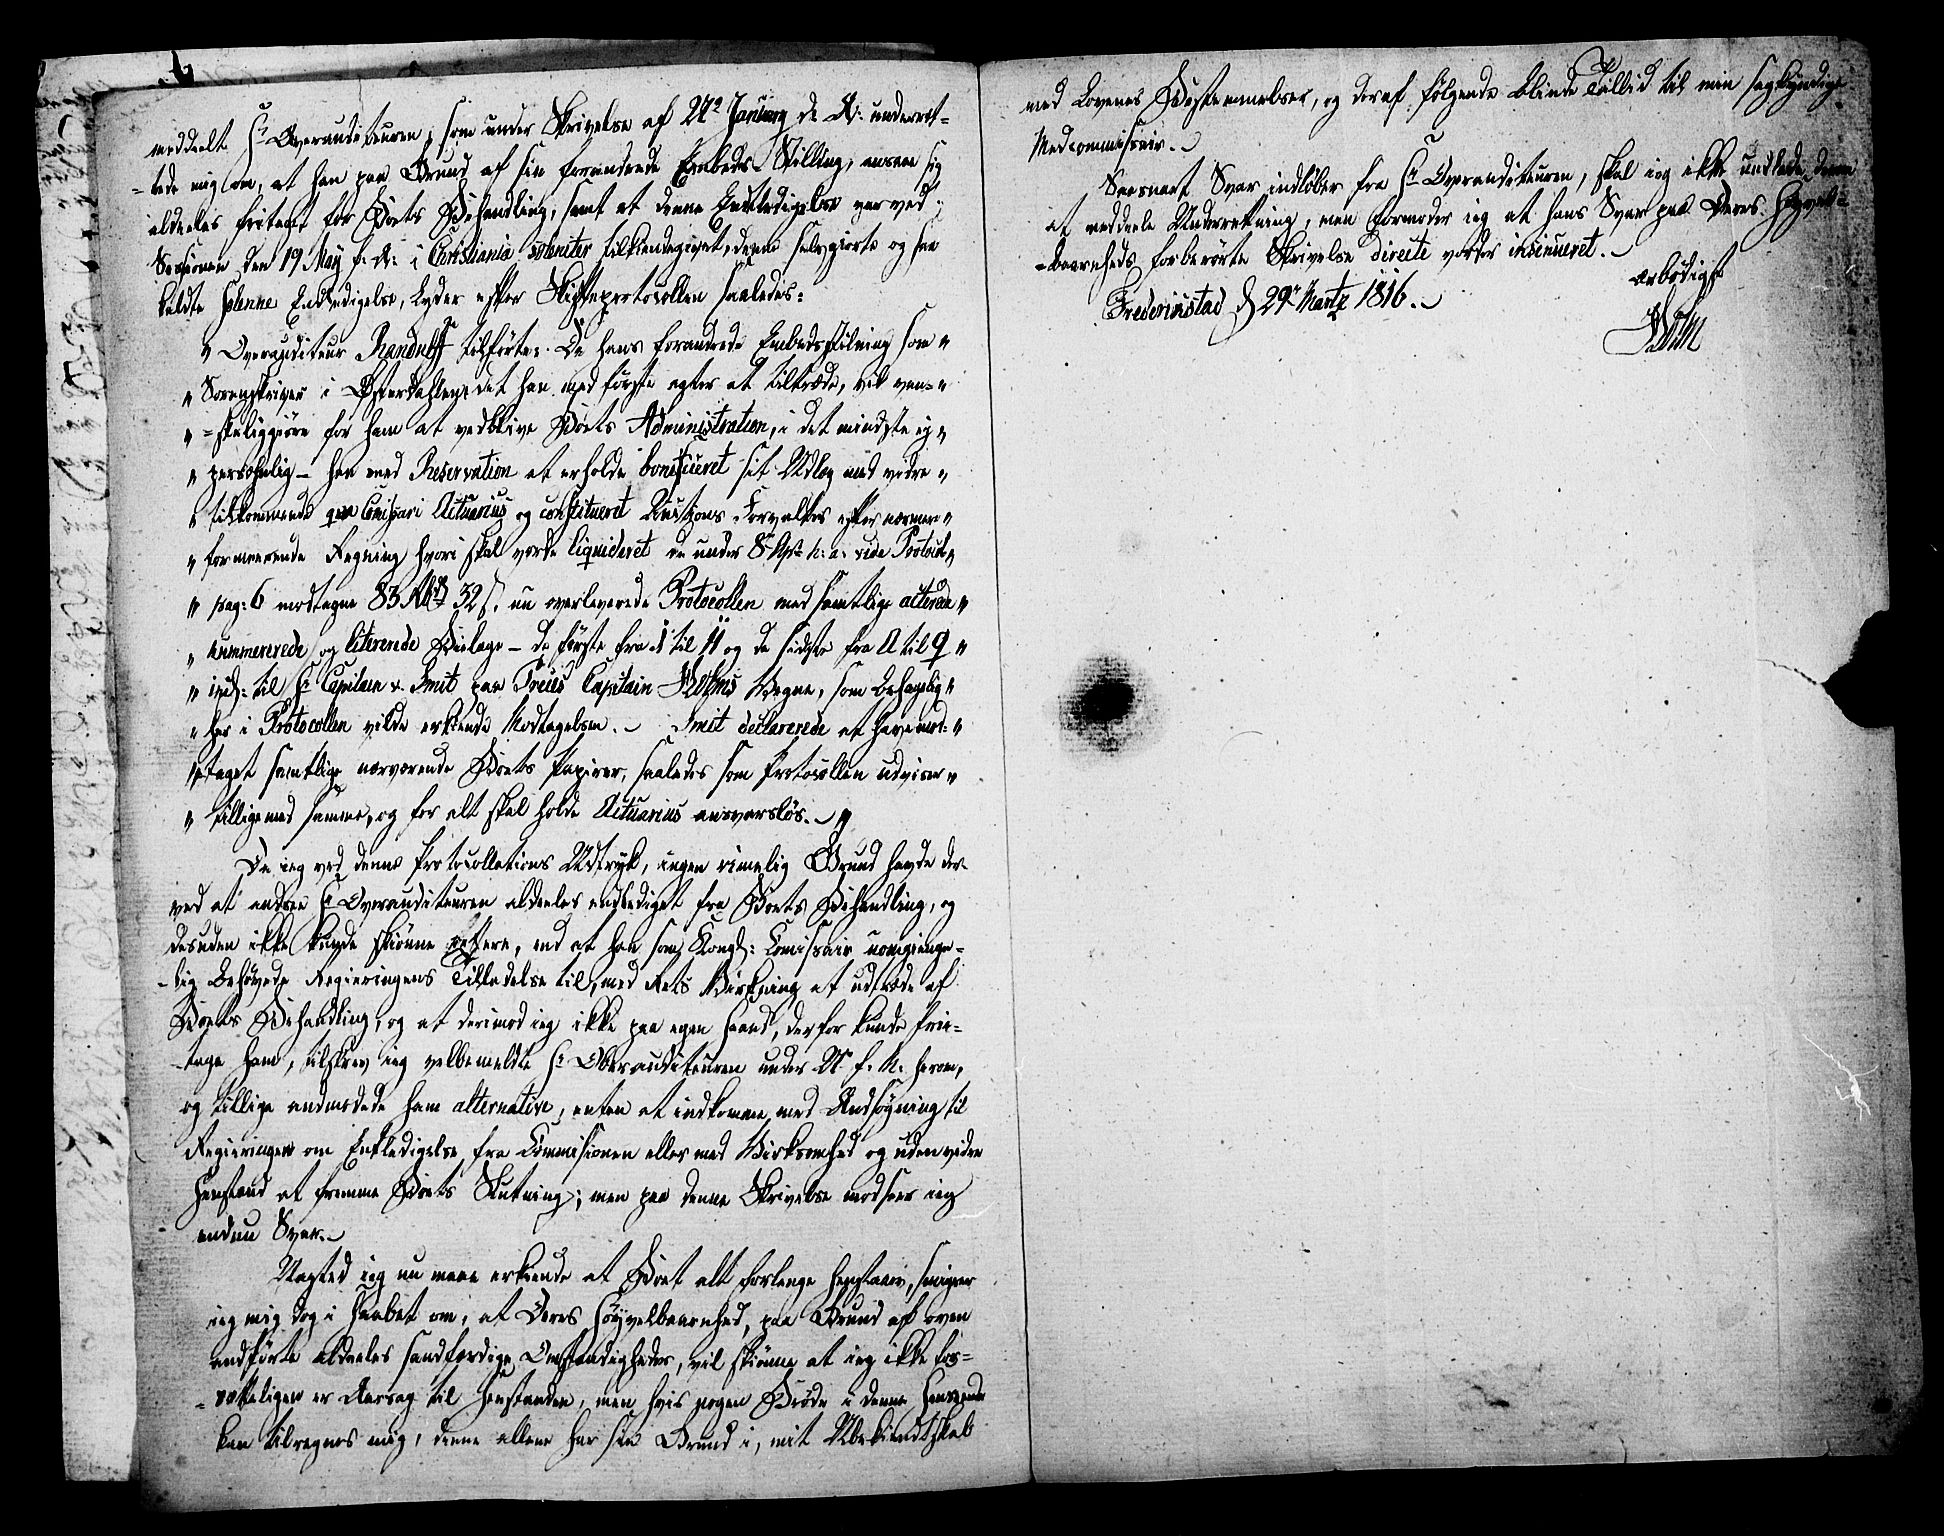 meddeelt Hr Overauditeuren, som under Skrivelse af 27de Januarij d: A: underret-
-tede mig om, at han paa Grund af sin forandrede Embeds Stilling, ansaae sig
aldeeles fritaget for Boets Behandling, samt at denne Entledigelse var ved
Sessionen den 19 May f: A: i Christiania soleniter tilkiendegivet, denne selvgiorte og saa
kaldte solenne Entledigelse, lyder efter Skifteprotocollen saaledes:
" Overauditeur Randulff tilførte: Da hans forandrede Embedsstilning som "
" Sorenskriver i Østerdahlen, det han med første agter at tiltræde, vil van- "
" -skeliggiøre for ham at vedblive Boets Administration, i det mindste ey "
" persohnlig - han med Reservation at erholde bonificeret sit Udlæg med vidre "
" tilkommende qva Comissair Actuarius og constitueret Auctions Forvalter efter nærmer "
" formeerende Regning hvori skal vorde liqvideret de under 8 Apr: h: a: vide Protocol "
" pag: 6 modtagne 83 Rbd 32 s. nu overleverede Protocollen med samtlige acterede "
" nummererede og litererede Bielage - de første fra 1 til 11 og de sidste fra A til Q "
" incl: til Hr Capitain v. Smit paa Præses Capitain Wilhms Vegne, som behagelig "
" her i Protocollen vilde erkiende Modtagelsen. - Smit declarerede at have mod- "
" -taget samtlige nærværende Boets Papirer, saaledes som Protocollen udviser "
" tilligemed samme, og for alt skal holde Actuarius ansvarsløs. - "
Da ieg ved denne Protocollations Udtryk, ingen rimelig Grund havde der-
ved at ansee Hr Overauditeuren aldeeles entlediget fra Boets Behandling, og
desuden ikke kunde skiønne rettere, end at han som Kongl: Comissair uomgienge-
-lig behøvede Regieringens Tilladelse til, med Rets Virkning at udtræde af
Boets Behandling, og at derimod ieg ikke paa egen Haand, derfor kunde fri-
-tage ham, tilskrev ieg velbemeldte Hr Oberauditeuren under herom,
og tillige anmodede ham alternative, enten at indkomme med Ansøgning til
Regieringen om Entledigelse fra Commisionen eller med Virksomhed og uden vidre
Henstand at fremme Boets Slutning; men paa denne Skrivelse modseer ieg
endnu Svar. -
Uagted ieg nu maae erkiende at Boet alt forlænge henstaaer, smigrer
ieg mig dog i Haabet om, at Deres Høyvelbaarenhed, paa Grund af oven
anførte aldeeles sandfærdige Omstændigheder, vil skiønne at ieg ikke for-
-sættligen er Aarsag til Henstanden, men hvis nogen Brøde i denne Henseende
kan tilregnes mig, denne allene har sin Grund i, mit Ubekiendtskab
med Lovenes Bestemmelser, og deraf følgende blinde Tillid til min sagkyndige
Medcommissair. -
Saasnart Svar indløber fra Hr Overauditeuren, skal ieg ikke undlade, denne
at meddeele Underretning, men formoder ieg at hans Svar paa Deres Høyvel-
-baarenheds forberørte Skrivelse directe vorder insinueret. -
ærbødigst
Friderichstad d 29de Martz 1816. -